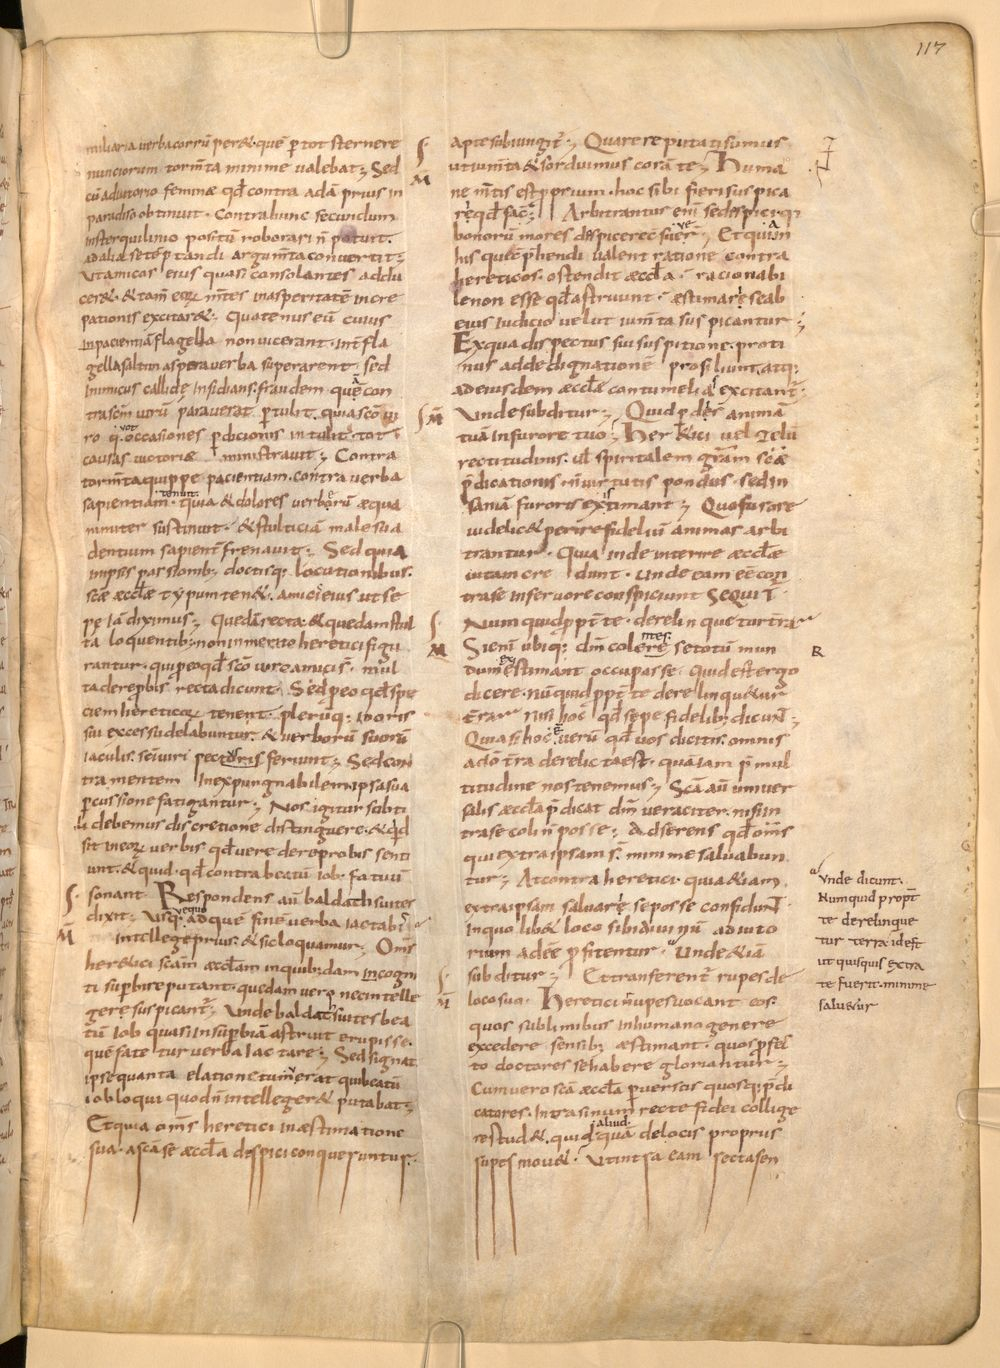 117
miliaria verba corrūperet · quē ꝑ tot sternere
nunciorum tormt̄a minime valebat; Sed
cū adiutorio feminæ qd̄ contra adā prius in
paradiso obtinuit · Contra hunc secundum
in sterquilinio positū roborari n̄ potuit ·
ad alia se tēptandi argumt̄a convertit;
Ut amicos eius quasi consolantes addu
ceret · & tam̄ eoꝝ mt̄es in asperitatē incre
pationis excitaret; Quatenus eū cuius
inpacientiā flagella non vicerant · int̄ fla
gella saltim aspera verba superarent · sed
inimicus callide insidians · fraudem quā con
tra scm̄ virū paraverat ꝑtulit · quia scō vi
ro q̊t occasiones ꝑdicionis intulit · tot
causas victoriæ ministravit; Contra
tormt̄a quippe pacientiam · contra verba
sapientiam tenuit · quia & dolores verberū æqua
nimiter sustinuit · & stulticiā male sua
dentium sapient̄ frenavit; Sed quia
in ipsis passionib; doctisq; locutionibus ·
scæ æccl̄æ typum tenet · amici eius ut se
pe iā diximus; Quedā recta · & quedam stul
ta loquentib; non inmerito heretici figu
rantur · qui ꝑ eo qd̄ scō viro amici s̄ · mul
ta de reꝓbis recta dicunt · Sed ꝑ eo qd̄ spe
ciem hereticoꝝ tenent · plerūq; in oris
sui excessu delabuntur · & verborū suorū
iaculis · sc̄i viri pectoris feriunt; Sed con
tra mentem inexpugnabilem ipsa sua
ꝑcussione fatigantur; Nos igitur subti
li debemus discretione distinguere · & qid
sit in eoꝝ verbis qd̄ vere de reprobis senti
unt · & quid · qd̄ contra beatū iob · fatuū
sonant · Respondens aū baldath suites
dixit; Usq; adque finē verba iactabis
intellege prius · & sic loquamur · Om̄s
heretici scam̄ æccl̄am in quib;dam incogni
ti suꝑbire putant · quedam vero nec intelle
gere suspicant̄; Unde baldath suites bea
tū iob quasi in suꝑbiā astruit erupisse ·
quē fatetur verba iactare; Sed signat
ipse quanta elatione tumuerat qui beatū
iob loqui quod n̄ intellegeret putabat;
Et quia om̄s heretici in æstimatione
sua · a scā se æccl̄a despici conqueruntur ·
apte subiungit̄; Quare reputati sumus
ut iumt̄a & sorduimus corā te; Huma
næ mt̄is est ꝓprium · hoc sibi fieri suspica
ri qd̄ facit · Arbitrantur eni se despici qi
bonorū mores despicere suevert̄; Et quia in
his que cōꝑhendi valent ratione contra
hereticos · ostendit æccl̄a · racionabi
le non esse qd̄ astruunt · æstimare se ab
eius iudicio velut iumt̄a suspicantur;
Ex qua dispectus sui suspitione · proti
nus ad dedignationē prosiliunt · atq;
ad eiusdem æccl̄æ contumelia excitant̄;
Unde subditur; Quid ꝑdes animā
tuā in furore tuo; Heretici vel zelū
rectitudinis · ul̄ spiritalem gr̄am scæ
p̄dicationis · n̄ virtutis pondus · sed in
saniā furoris extimant; Quo furore
videlic& perire fidelū animas arbi
trantur · Quia inde interire æccl̄æ
vitam credunt · Unde eam eē con
tra se in fervore conspiciunt SEQUIT̄ ·
Numquid ꝓpt̄ te · derelinquetur tr̄a
Si enī ubiq; dm̄ colentes · se totū mun
dum existimant occupasse · Quid est ergo
dicere · nūquid ꝓpt̄ te derelinquetur
tr̄a · Nisi hoc qd̄ sepe fidelib; dicunt̄;
Quia si hoc ē verū qd̄ vos dicitis · omnis
a dō tr̄a derelicta est · quā iam p̄ mul
titudine nos tenemus; Scā aū univer
salis æccl̄a p̄dicat dm̄ veraciter · nisi in
tra se coli n̄ posse; Adserens qd̄ om̄s
qui extra ipsam s̄ · minime salvabun
tur; At contra heretici · quia etiam
extra ipsam salvare se posse confidunt̄
in quo lib& loco sibi divinū adiuto
rium adeē ꝓfitentur · Unde & iā
subditur; Et transferent̄ rupes de
loco suo · Heretici rupes vocant eos ·
quos sublimibus in humano genere
excedere sensib; æstimant · quos ꝓfec
to doctores se habere gloriantur;
Cum vero scā æccl̄a ꝑversos quosq; p̄di
catores · intra sinum recte fidei collige
re stud& · quid aliud quā de locis propriis
rupes mov& · Ut intra eam recta sen
R
Unde dicunt ·
Numquid ꝓpt̄
te derelinque
tur terra · id est
ut quisquis extra
te fuerit · minime
salvetur